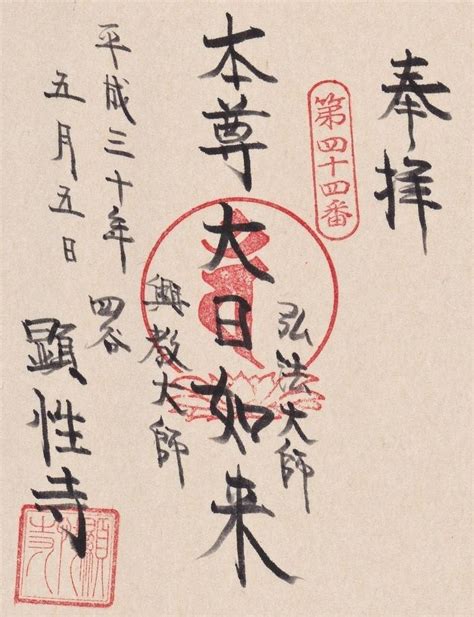 奉拝
第四十四番
弘法大師
本尊大日如来
興教大師
平成三十年
五月五日
四谷
顕性寺